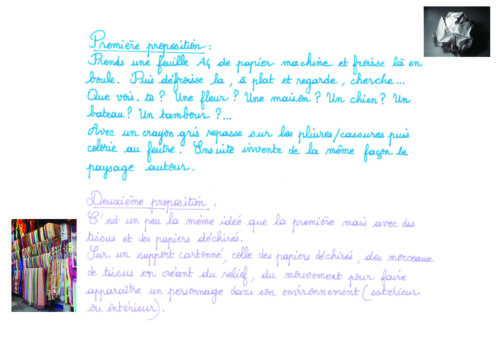 Première proposition :
Prends une feuille A4 de papier machine et froisse là en
boule. Puis défroisse la, à plat et regarde, cherche...
Que vois-tu? Une fleur? Une maison? Un chien? Un
bateau? Un tambour?...
Avec un crayon gris repasse sur les pliures/cassures puis
colorie au feutre. Ensuite invente de la même façon le
paysage autour.
Deuxième proposition :
C'est un peu la même idée que la première mais avec des
tissus et des papiers déchirés.
Sur un support cartonné, colle des papiers déchirés, des morceaux
de tissus en créant du relief, du mouvement pour faire
apparaître un personnage dans son environnement (extérieur
ou intérieur).